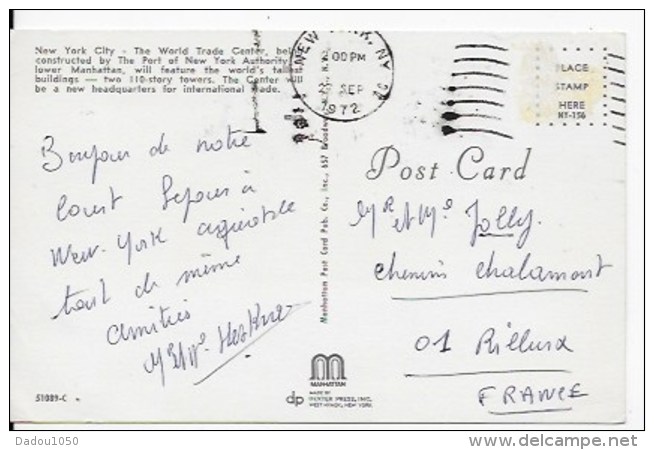 New York City - The World Trade Center, being
constructed by The Port of New York Authority
lower Manhattan, will feature the world's tallest
buildings — two 110-story towers. The Center will
be a new headquarters for international trade.
NEW YORK, NY
00 PM
SEP
1972
PLACE
STAMP
HERE
NY-156
Post Card
Bonjour de notre
court séjour à
New-York agréable
tout de même
Amitiés
Mr et Me
Manhattan Post Card Pub. Co., Inc., 657 Broadway
Mr et Me Jolly.
chemin chalamont
01 Rillieux
FRANCE
MANHATTAN
dp
MADE BY
DEXTER PRESS, INC.
WEST NYACK, NEW YORK
51089-C
Dadou1050
www.delcampe.net